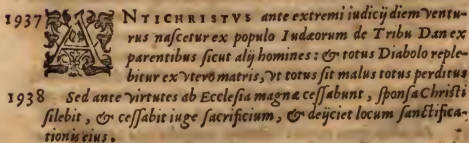 1937 ANTICHRISTVS ante extremi iudicij diem ventu-
rus nascetur ex populo Iudæorum de Tribu Dan ex
parentibus sicut alij homines: & totus Diabolo reple-
bitur ex vtero matris, vt totus sit malus totus perditus
1938 Sed ante virtutes ab Ecclesia magnæ cessabunt, sponsa Christi
silebit, & cessabit iuge sacrificium, & deijciet locum sanctifica-
tionis eius.